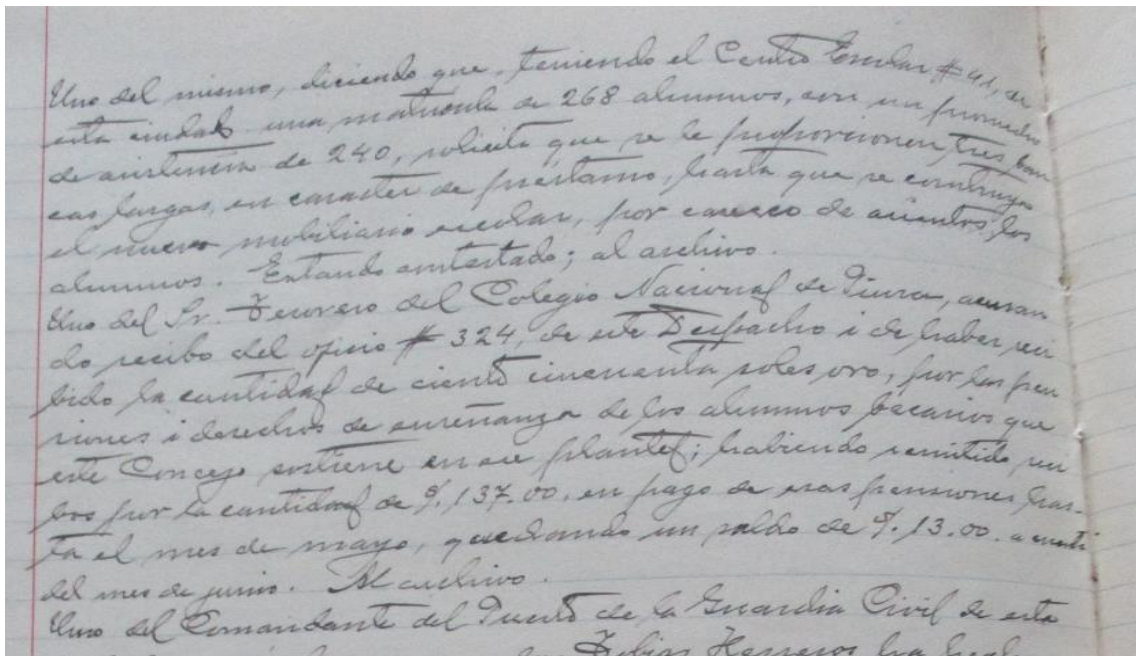 Uno del mismo, diciendo que, teniendo el Centro Escolar # 41, de
esta ciudad una matrícula de 268 alumnos, con un promedio
de asistencia de 240, solicita que se le proporcionen tres ban
cas largas, en caracter de prestamo, hasta que se construya
el nuevo mobiliario escolar, por carecer de asientos los
alumnos. Estando contestado; al archivo.
Uno del Sr. Tesorero del Colegio Nacional de Piura, acusan
do recibo del oficio # 324, de este Despacho i de haber reci
bido la cantidad de ciento cincuenta soles oro, por las pen
siones i derechos de enseñanza de los alumnos becarios que
este Concejo sostiene en ese plantel; habiendo remitido reci
bos por la cantidad de S/. 137.00, en pago de esas pensiones has-
ta el mes de mayo, quedando un saldo de S/. 13.00. a cuenta
del mes de junio. Al archivo.
Uno del Comandante del Puesto de la Guardia Civil de esta
Herreros ha